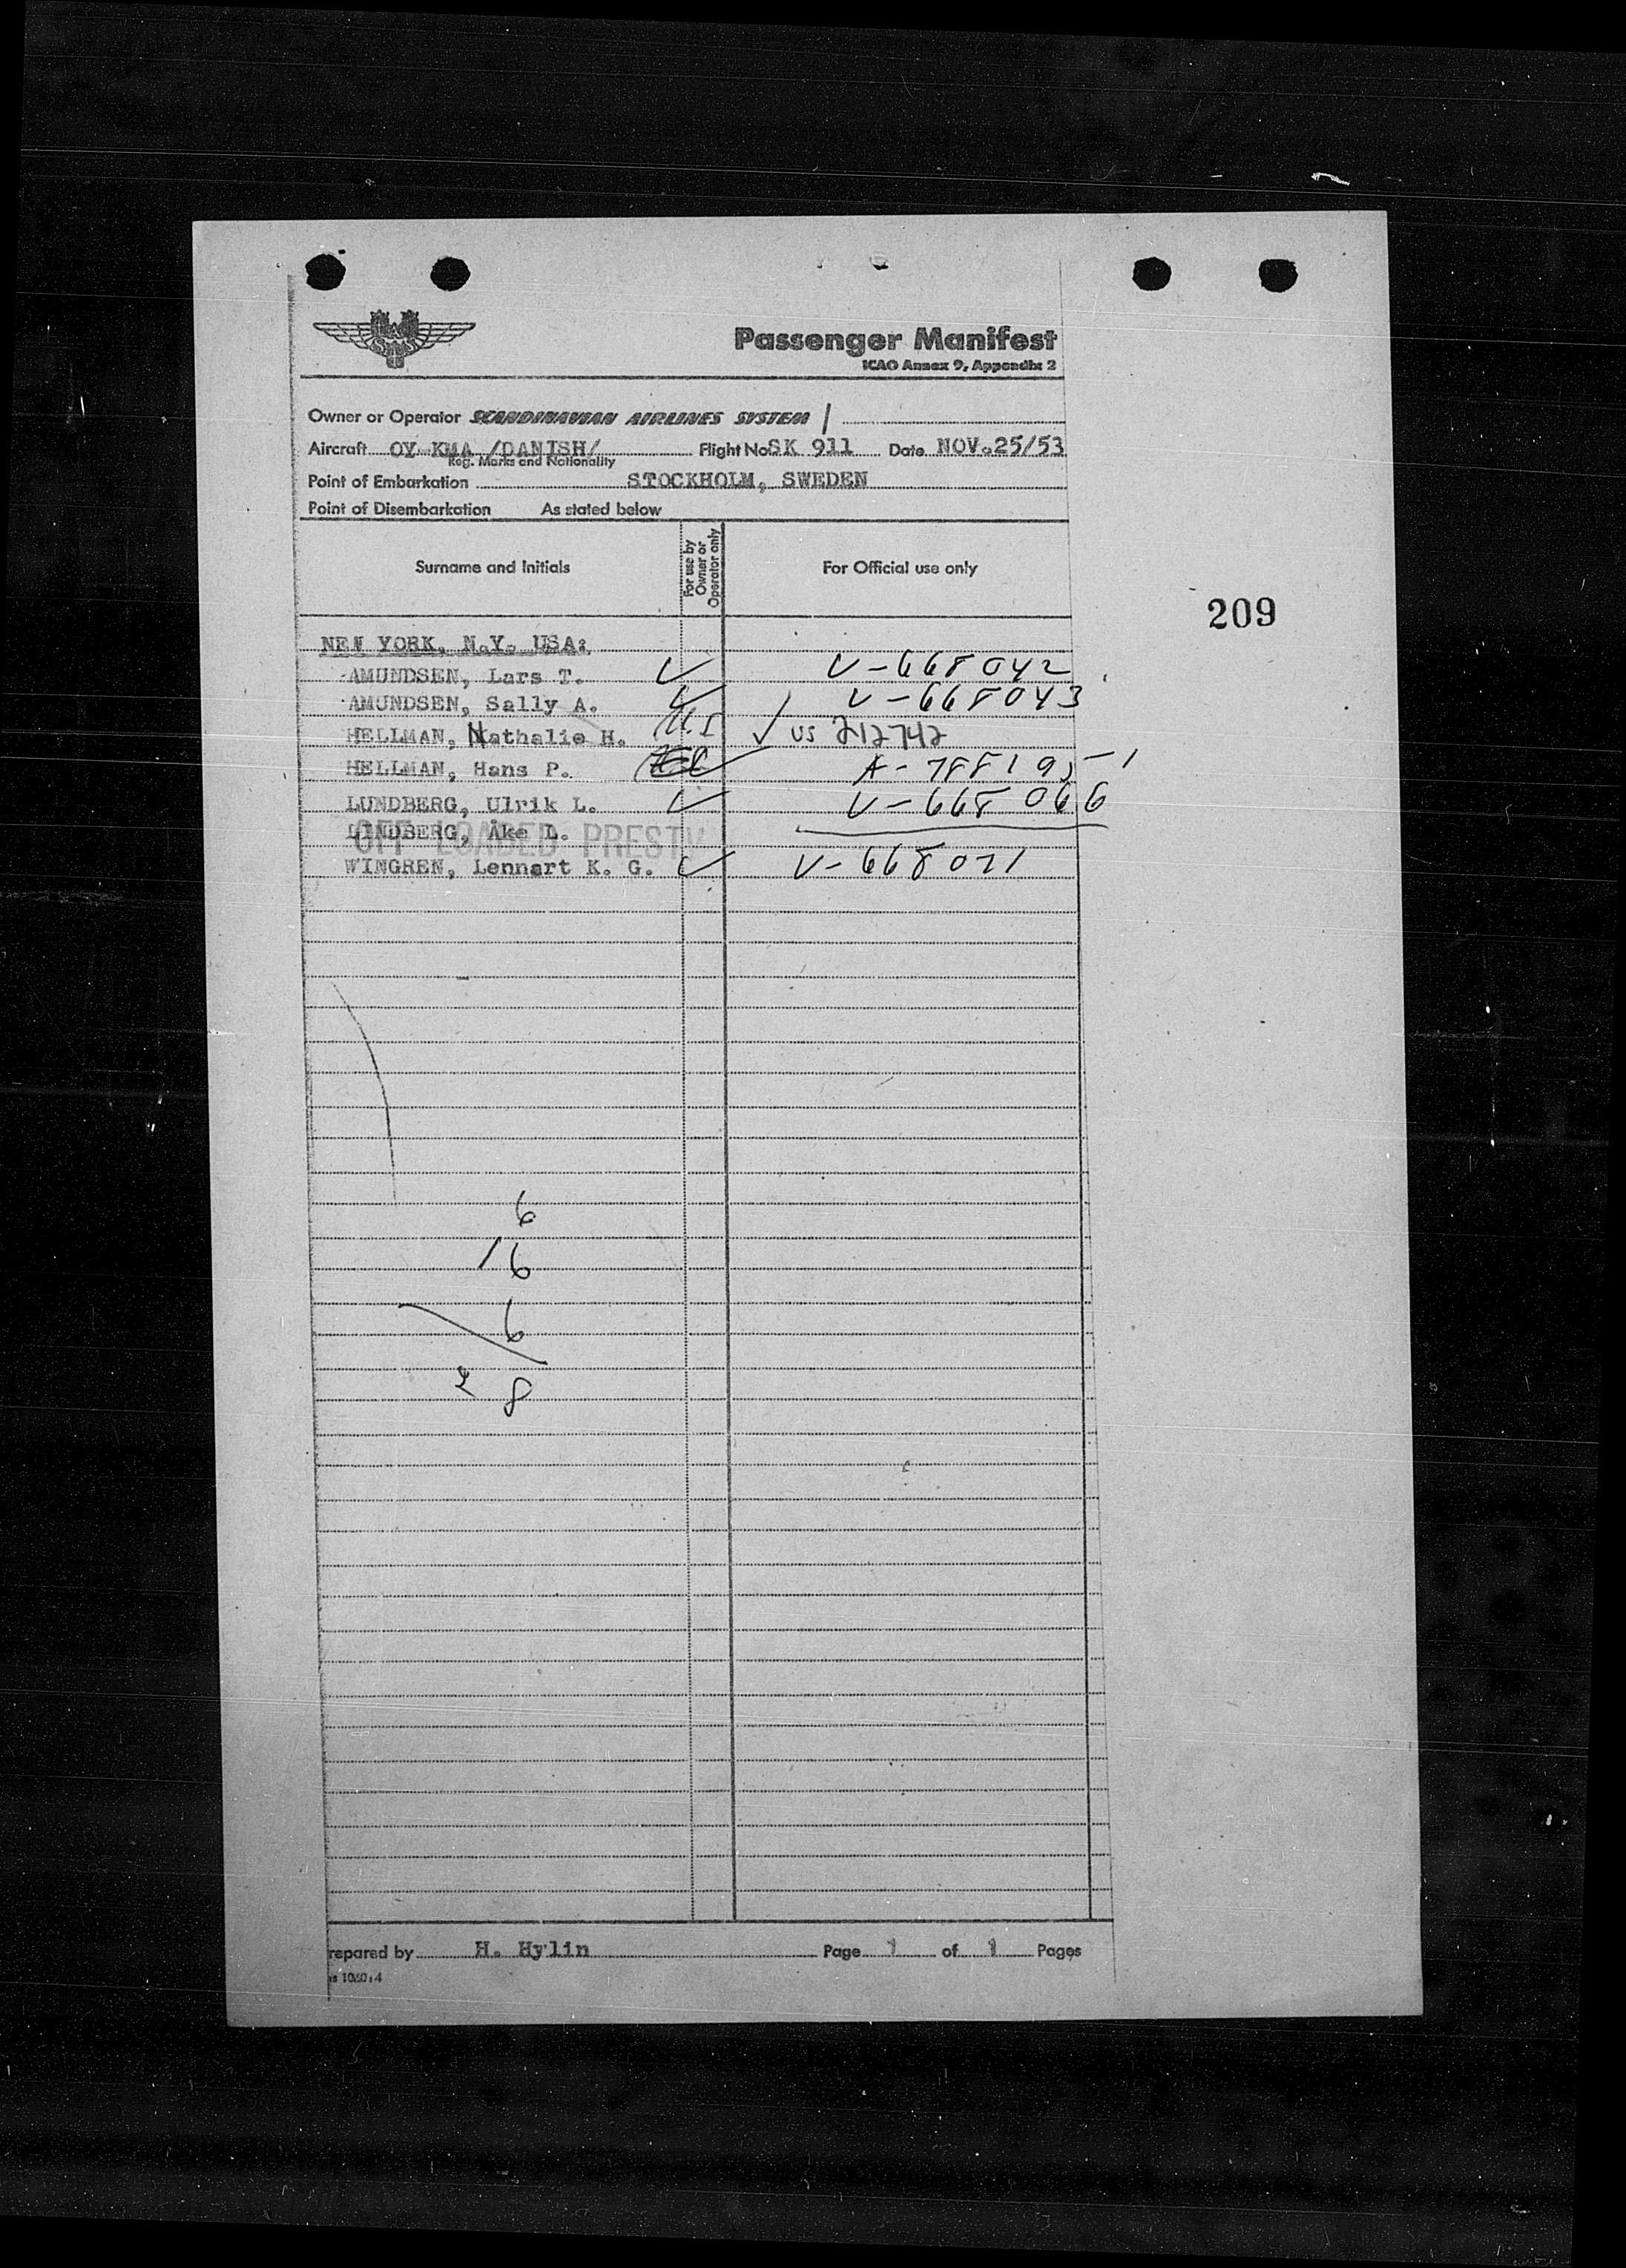 Passenger Manifest
ICAO Annex 9, Appendix 2
Owner or Operator SCANDINAVIAN AIRLINES SYSTEM
Aircraft OY-KMA /DANISH/ Flight No SK 911 Date NOV. 25/53
Reg. Marks and Nationality
Point of Embarkation STOCKHOLM, SWEDEN
Point of Disembarkation As stated below
Surname and Initials For use by Owner or Operator only For Official use only
209
NEW YORK, N.Y. USA:
AMUNDSEN, Lars T. ✓ V-668042
AMUNDSEN, Sally A. ✓ V-668043
HELLMAN, Nathalie H. ✓ US 212742
HELLMAN, Hans P. A-7881951
LUNDBERG, Ulrik L. ✓ V-668066
LINDBERG, Åke L.
OFF LOADED PRESTW
WINGREN, Lennart K. G. ✓ V-668071
6
16
6
28
repared by H. Hylin Page 1 of 1 Pages